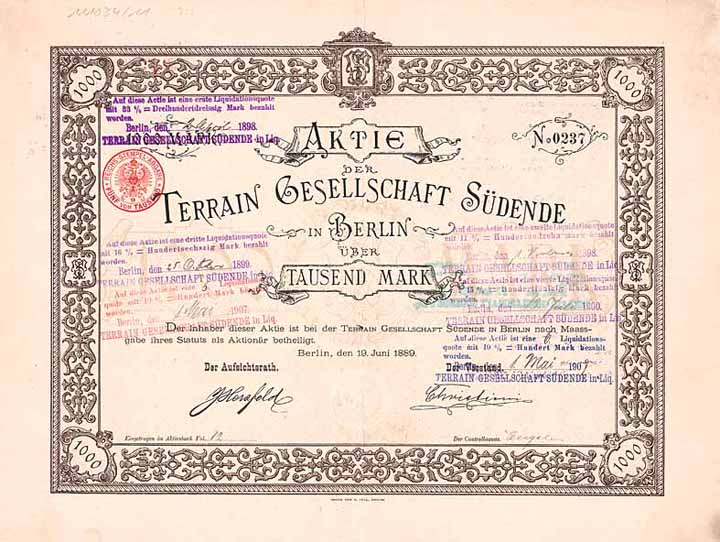 111034/11
1000
1000
Auf diese Actie ist eine erste Liquidationsquote
mit 33 % = Dreihundertdreissig Mark bezahlt
worden.
Berlin, den 1898.
TERRAIN GESELLSCHAFT SÜDENDE in Liq.
1000 MARK
REICHS STEMPEL ABGABE
FÜNF VOM TAUSEND
AKTIE
No 0237
DER
TERRAIN GESELLSCHAFT SÜDENDE
IN BERLIN
ÜBER
TAUSEND MARK
Auf diese Actie ist eine zweite Liquidationsquote
mit 11 % = Hundertzehn Mark bezahlt
worden.
Berlin, den 1898.
TERRAIN GESELLSCHAFT SÜDENDE in Liq.
Auf diese Actie ist eine dritte Liquidationsquote
mit 16 % = Hundertsechzig Mark bezahlt
worden.
Berlin, den 25. 1899.
TERRAIN GESELLSCHAFT SÜDENDE in Liq.
1900.
TERRAIN GESELLSCHAFT SÜDENDE in Liq.
Auf diese Actie ist eine 5. Liquidations-
quote mit 10 % = Hundert Mark bezahlt
worden.
Berlin, den 1 Mai 1907.
TERRAIN GESELLSCHAFT SÜDENDE in Liq.
Der Inhaber dieser Aktie ist bei der TERRAIN GESELLSCHAFT SÜDENDE IN BERLIN nach Maass-
gabe ihres Statuts als Aktionär betheiligt.
Berlin, den 19. Juni 1889.
Auf diese Actie ist eine 6 Liquidations-
quote mit 10 % = Hundert Mark bezahlt
worden.
Berlin, den Mai 190
TERRAIN GESELLSCHAFT SÜDENDE in Liq.
Der Aufsichtsrath.
Der Vorstand.
Eingetragen im Aktienbuch Fol. 12
Der Controlbeamte.
1000
1000